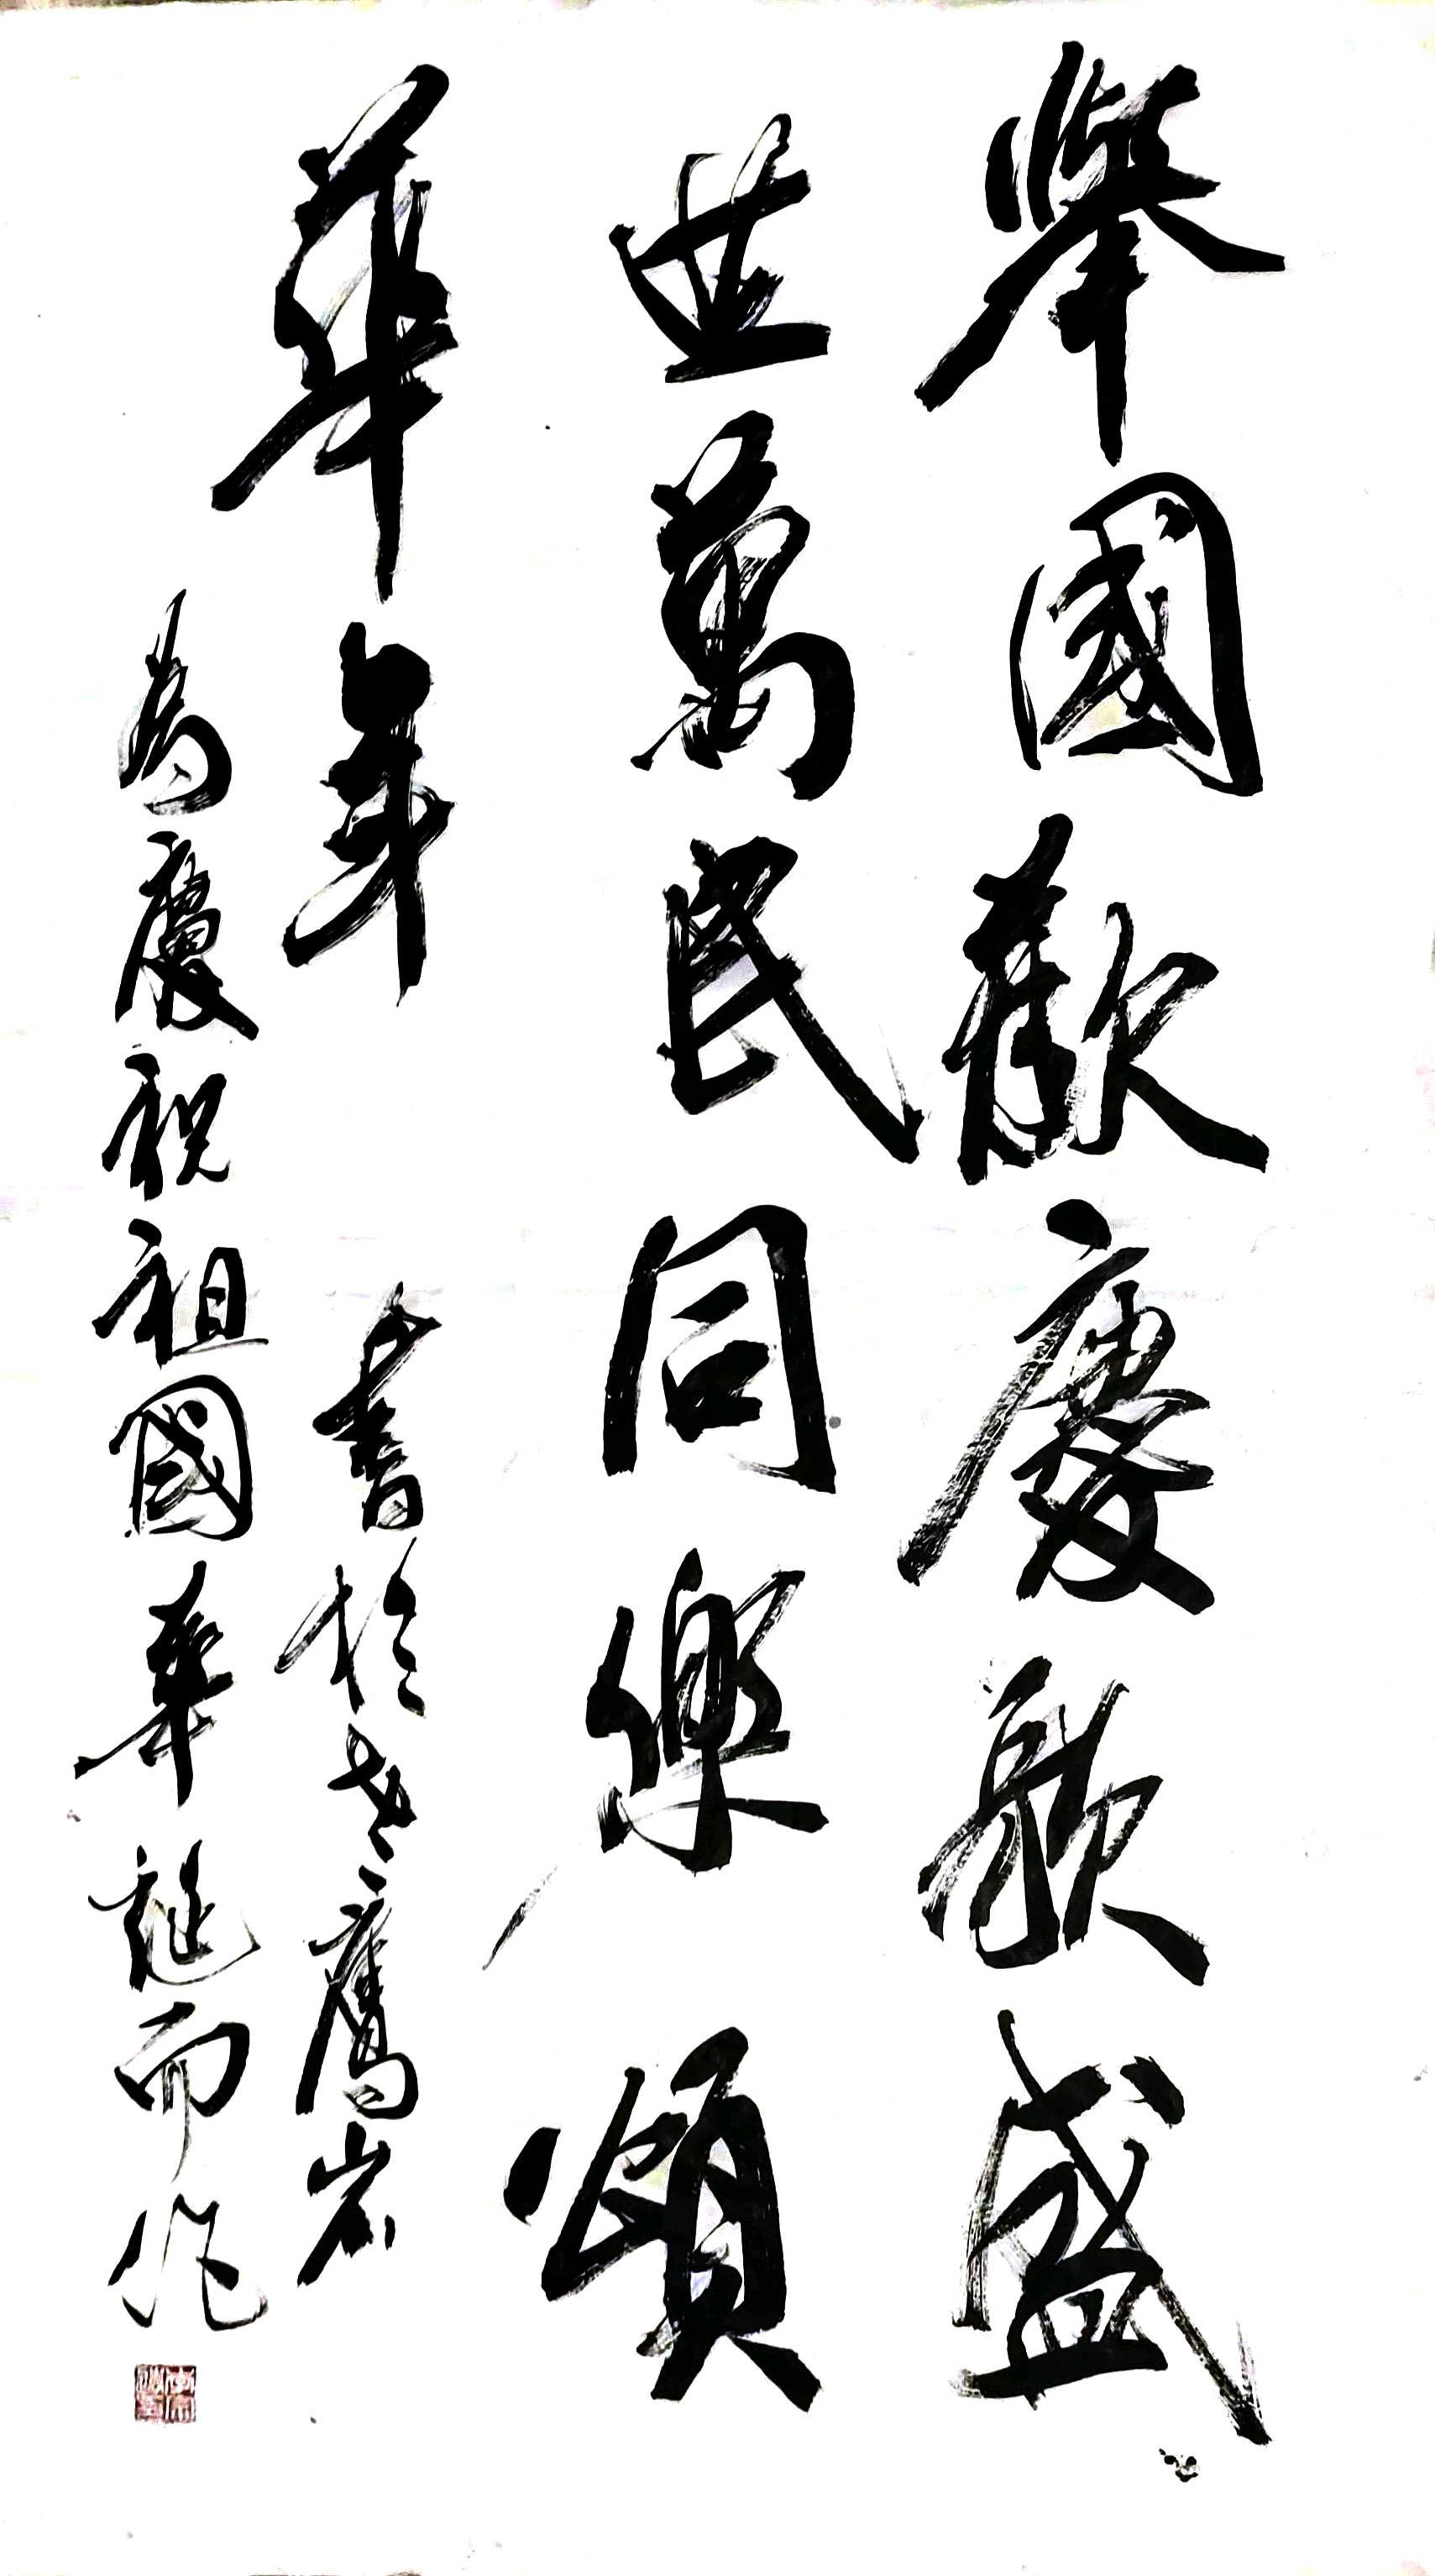 舉國歡慶歌盛
世萬民同樂頌
華年
為慶祝祖國華誕而作
書於老鷹岩